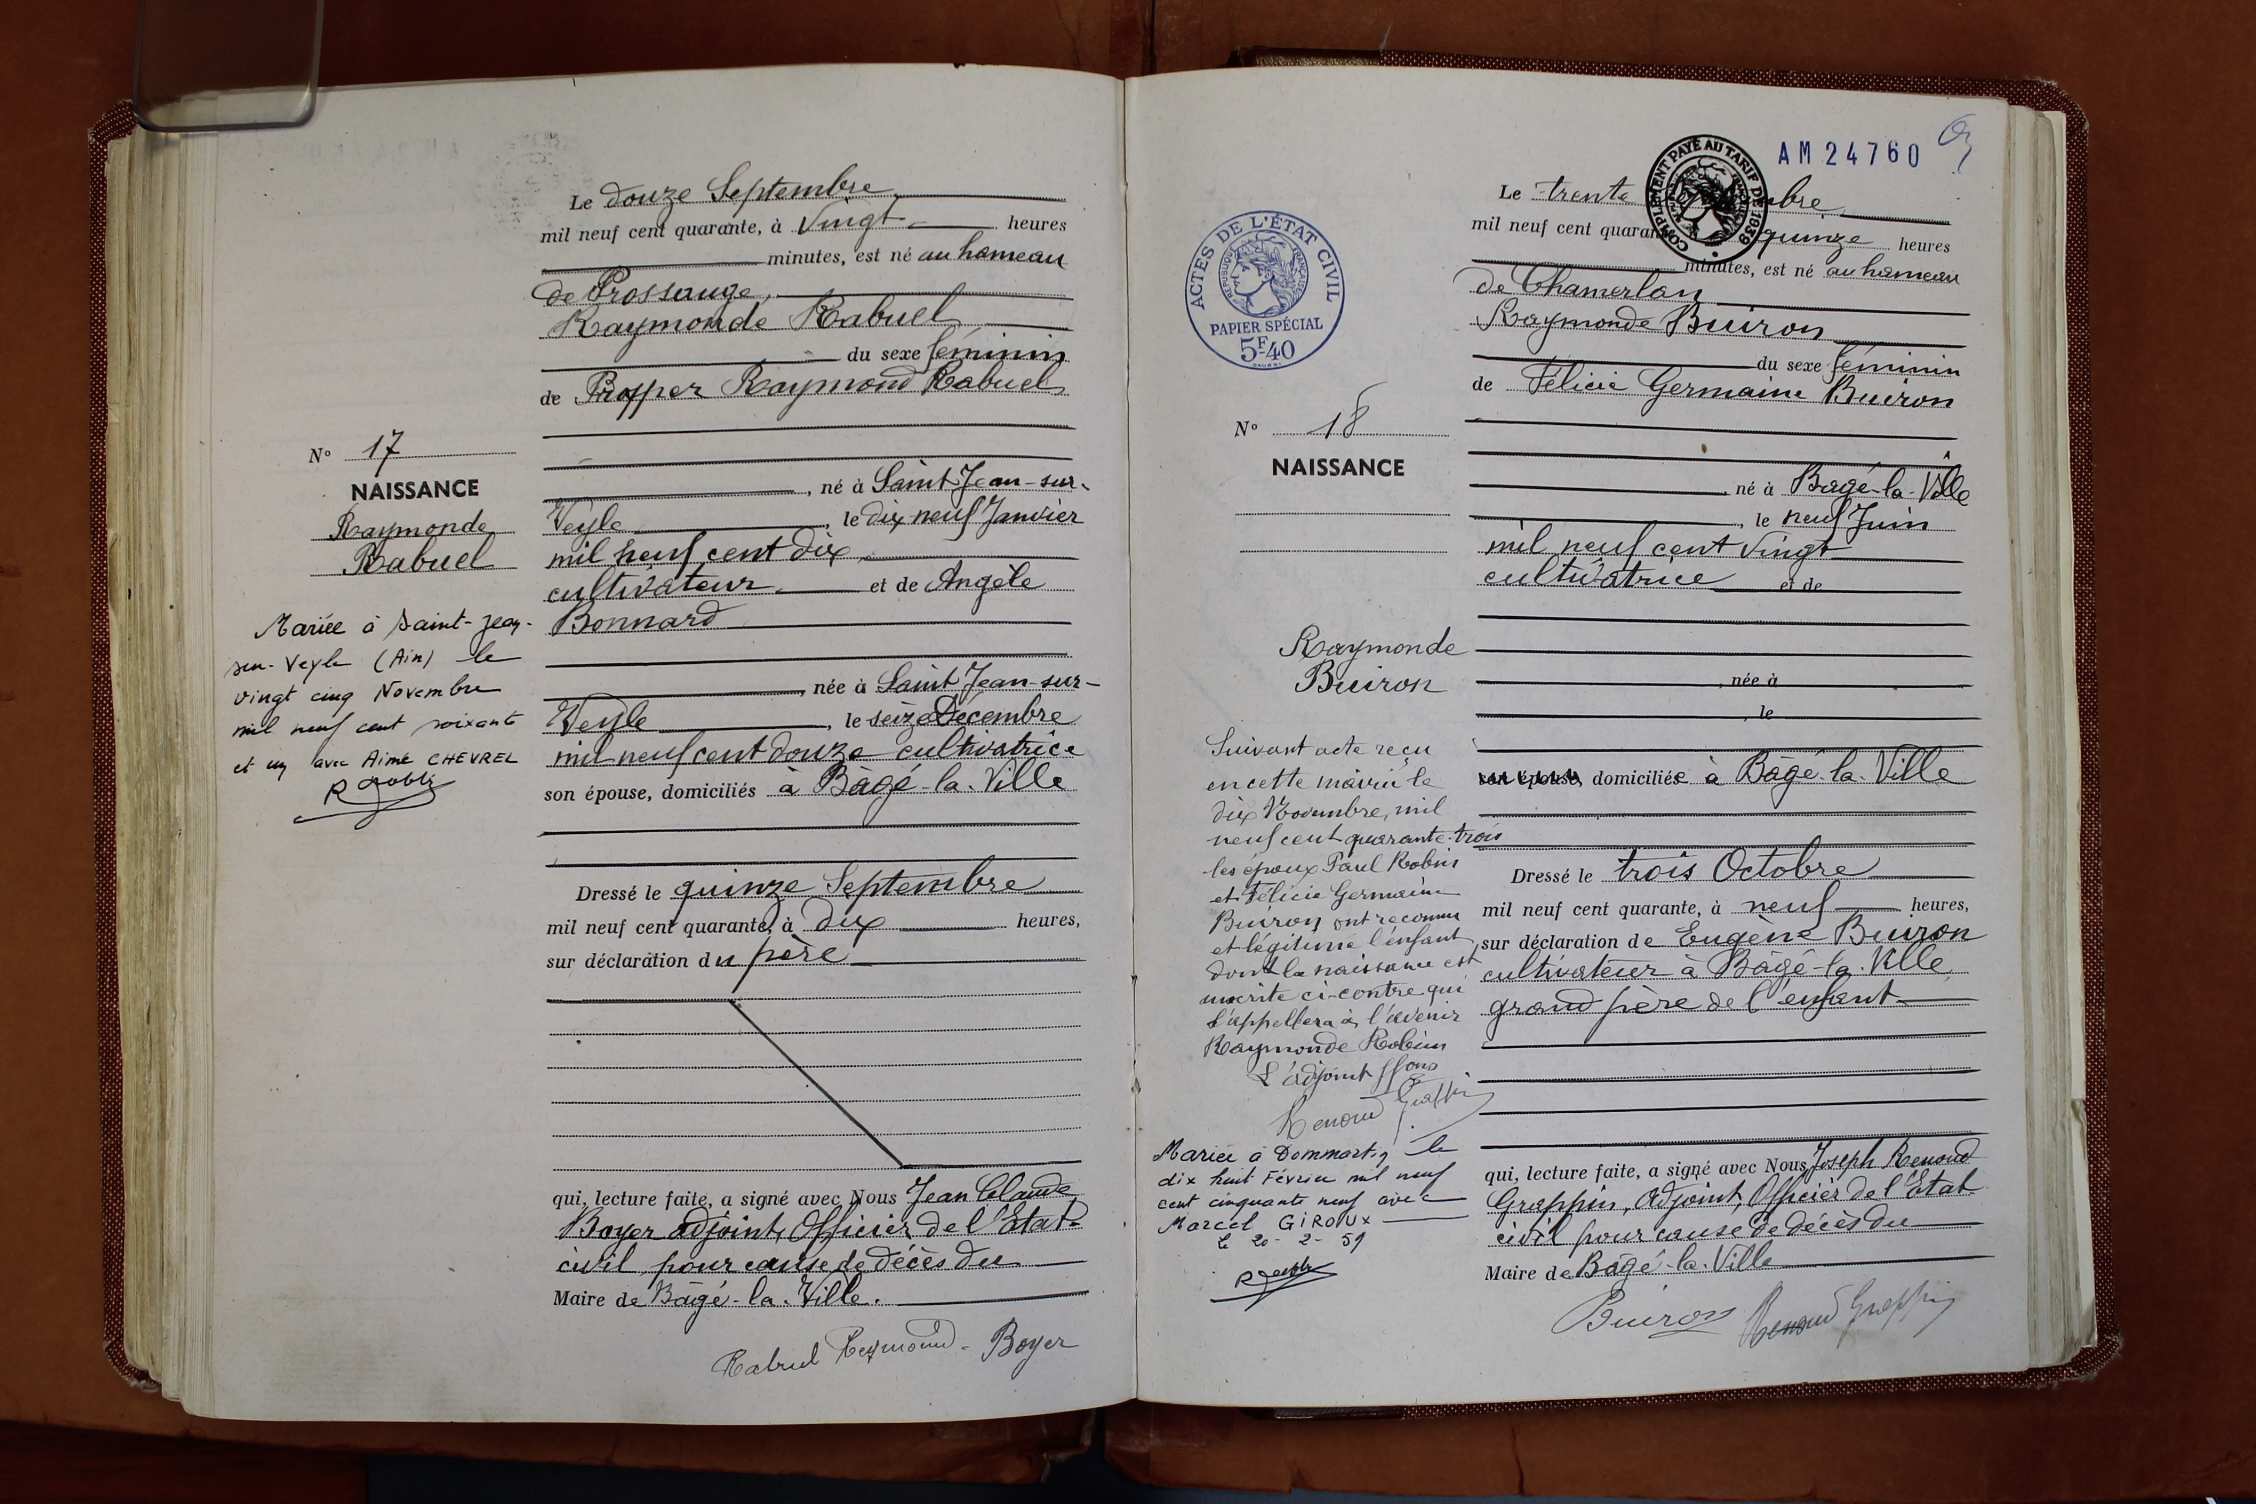 Le douze Septembre
mil neuf cent quarante, à Vingt heures
minutes, est né au hameau
de Prossange,
Raymonde Rabuel
du sexe féminin
de Prosper Raymond Rabuel
N° 17
NAISSANCE
Raymonde
Rabuel
Mariée à Saint-Jean-
sur-Veyle (Ain) le
vingt cinq Novembre
mil neuf cent soixante
et un avec Aimé CHEVREL
, né à Saint Jean-sur-
Veyle, le dix neuf Janvier
mil neuf cent dix
cultivateur et de Angèle
Bonnard
, née à Saint Jean-sur-
Veyle, le seize Décembre
mil neuf cent douze cultivatrice
son épouse, domiciliés à Bâgé-la-Ville
Dressé le quinze Septembre
mil neuf cent quarante, à dix heures,
sur déclaration du père
qui, lecture faite, a signé avec Nous Jean Claude
Boyer adjoint, Officier de l'Etat-
civil pour cause de décès du
Maire de Bâgé-la-Ville.
Rabuel Raymond - Boyer
AM 24760
COMPLEMENT PAYÉ AU TARIF DE 1939
Le trente
mil neuf cent quarante quinze heures
minutes, est né au hameau
de Chamerlan
Raymonde Buiron
du sexe féminin
de Félicie Germaine Buiron
ACTES DE L'ÉTAT CIVIL
RÉPUBLIQUE FRANÇAISE
PAPIER SPÉCIAL
5F40
N° 18
NAISSANCE
Raymonde
Buiron
Suivant acte reçu
en cette mairie le
dix Novembre, mil
neuf cent quarante-trois
les époux Paul Robin
et Félicie Germaine
Buiron ont reconnu
et légitimé l'enfant
dont la naissance est
inscrite ci-contre qui
s'appellera à l'avenir
Raymonde Robin
L'adjoint ffons
Renoud Grappin
Mariée à Dommartin le
dix huit Février mil neuf
cent cinquante neuf avec
Marcel GIROUX
Le 20-2-59
, né à Bâgé-la-Ville
, le neuf Juin
mil neuf cent vingt
cultivatrice et de
, née à
, le
son épouse, domiciliée à Bâgé-la-Ville
Dressé le trois Octobre
mil neuf cent quarante, à neuf heures,
sur déclaration de Eugène Buiron
cultivateur à Bâgé-la-Ville
grand père de l'enfant
qui, lecture faite, a signé avec Nous Joseph Renoud
Grappin, adjoint, Officier de l'Etat
civil pour cause de décès du
Maire de Bâgé-la-Ville
Buiron Renoud Grappin